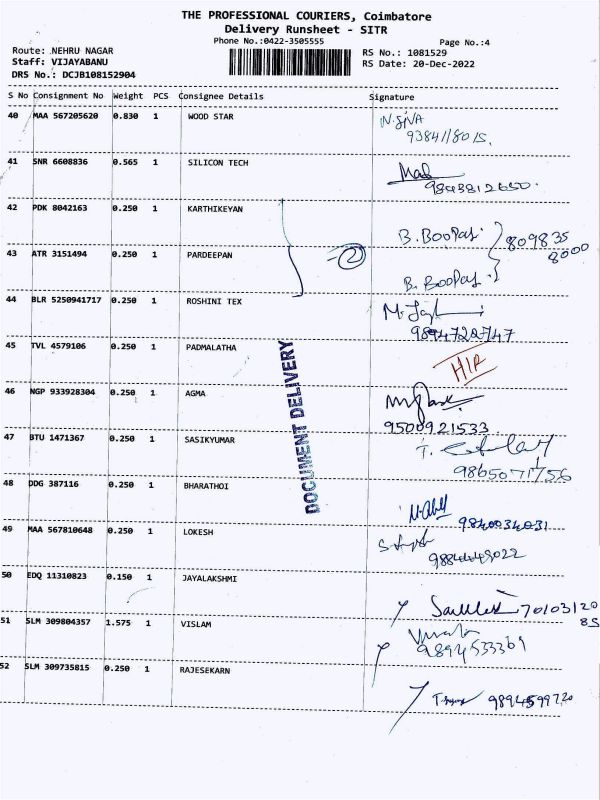 THE PROFESSIONAL COURIERS, Coimbatore
Delivery Runsheet - SITR
Phone No.:0422-3505555
Page No.:4
Route: NEHRU NAGAR
RS No.: 1081529
Staff: VIJAYABANU
RS Date: 20-Dec-2022
DRS No.: DCJB108152904
S No Consignment No Weight PCS Consignee Details Signature
40 MAA 567205620 0.830 1 WOOD STAR
N. SIVA
9384118015.
41 SNR 6608836 0.565 1 SILICON TECH
9843812650.
42 PDK 8042163 0.250 1 KARTHIKEYAN
B. Boopay.
809835
8000
=2
43 ATR 3151494 0.250 1 PARDEEPAN
B. Boopay.
44 BLR 5250941717 0.250 1 ROSHINI TEX
9894728747
45 TVL 4579106 0.250 1 PADMALATHA
HIR
DOCUMENT DELIVERY
46 NGP 933928304 0.250 1 AGMA
9500921533
47 BTU 1471367 0.250 1 SASIKYUMAR
9865071756
48 DDG 387116 0.250 1 BHARATHOI
9840034031
49 MAA 567810648 0.250 1 LOKESH
9884449022
50 EDQ 11310823 0.150 1 JAYALAKSHMI
70103120
85
51 SLM 309804357 1.575 1 VISLAM
9894533361
52 SLM 309735815 0.250 1 RAJESEKARN
9894599720